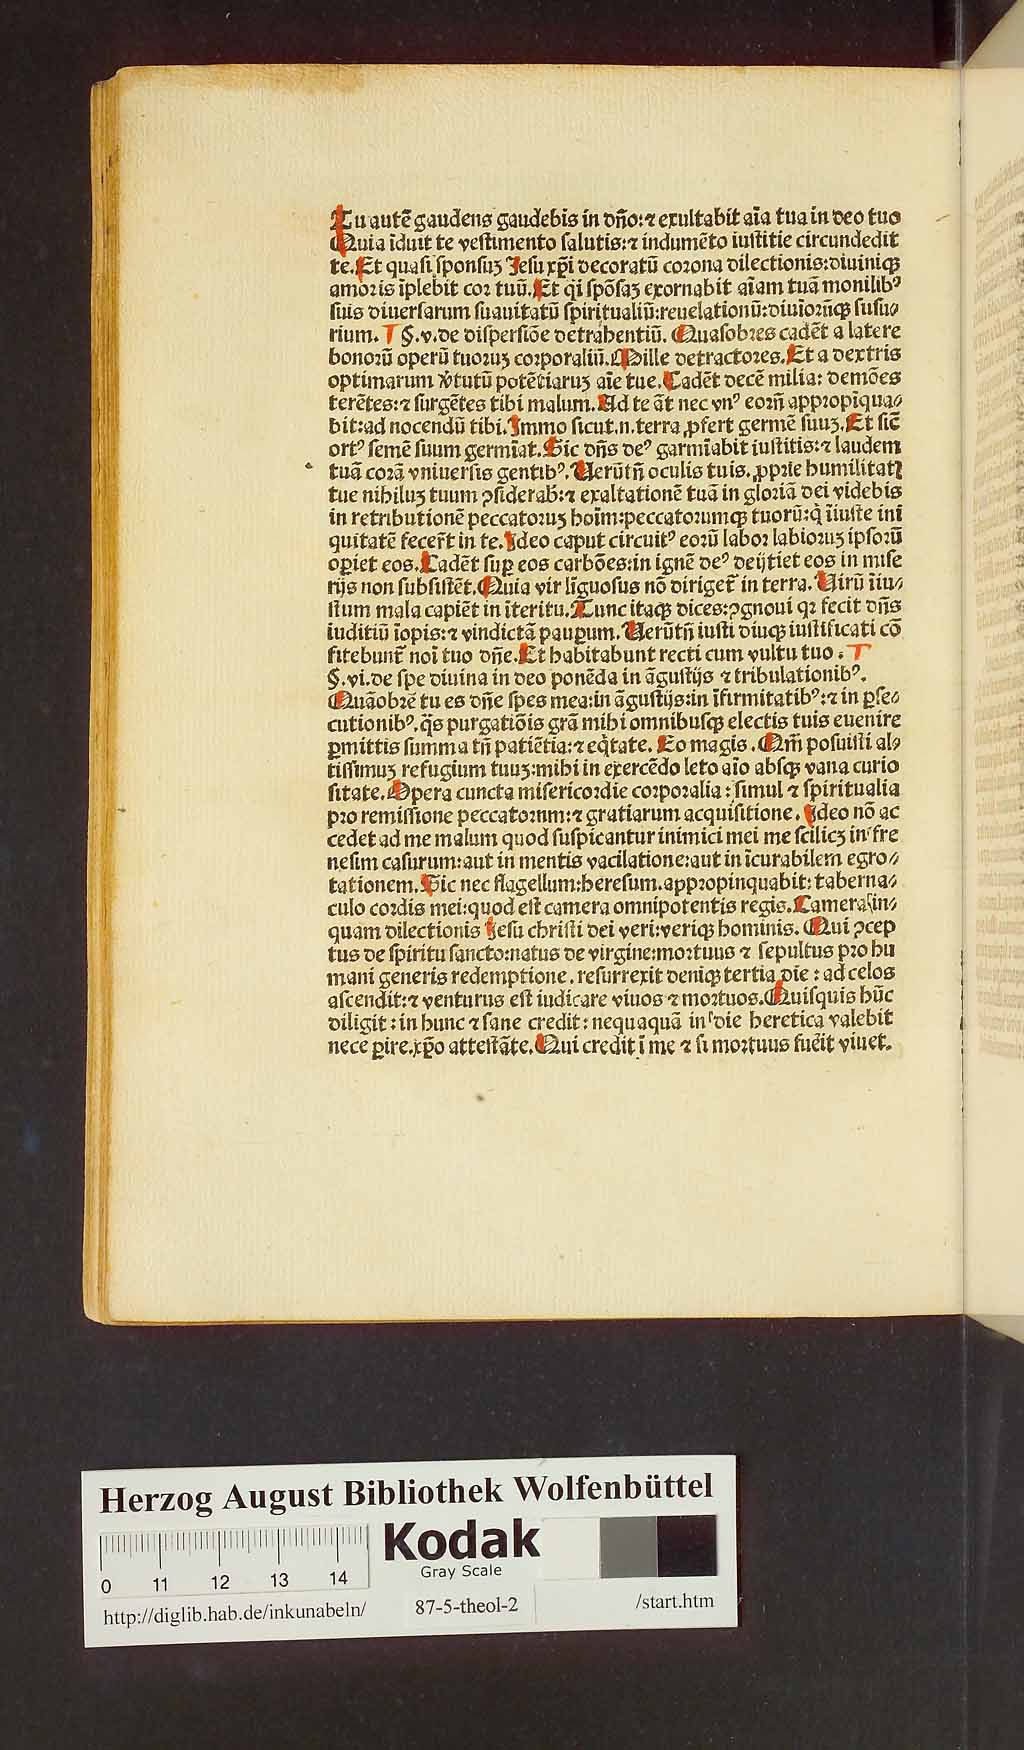 Tu autē gaudens gaudebis in dño: ⁊ exultabit aīa tua in deo tuo
Quia īduit te vestimento salutis: ⁊ indumēto iustitie circundedit
te. Et quasi sponsuʒ Jesu xp̄i decoratū corona dilectionis: diuiniqꝫ
amoris īplebit cor tuū. Et qͥ spōsaʒ exornabit aīam tuā monilibꝰ
suis diuersarum suauitatū spiritualiū: reuelationū: diuīorūqꝫ susu⸗
rium. §. v. de dispersiōe detrahentiū. Quāsobres cadēt a latere
bonorū operū tuoruʒ corporaliū. Mille detractores. Et a dextris
optimarum v̓tutū potētiaruʒ aīe tue. Cadēt decē milia: demōes
terētes: ⁊ surgētes tibi malum. Ad te āt nec vnꝰ eorū appropīqua⸗
bit: ad nocendū tibi. Immo sicut .n. terra ꝓfert germē suuʒ. Et sic̄
ortꝰ semē suum germīat. Sic dn̄s deꝰ garmīabit iustitis: ⁊ laudem
tuā corā vniuersis gentibꝰ. Uerūtñ oculis tuis. ꝓprie humilitatꝭ
tue nihiluʒ tuum ꝯsiderab̄: ⁊ exaltationē tuā in gloriā dei videbis
in retributionē peccatoruʒ hoīm: peccatorumqꝫ tuorū: q̇ īiuste ini
quitatē fecer̄t in te. Ideo caput circuitꝰ eorū labor labioruʒ ipsorū
oꝑiet eos. Cadēt suꝑ eos carbōes: in ignē deꝰ deijtiet eos in mise
rijs non subsistēt. Quia vir līguosus nō dirigēt in terra. Uirū īiu⸗
stum mala capiēt in īteritu. Tunc itaqꝫ dices: ꝯgnoui qꝛ fecit dn̄s
iuditiū īopis: ⁊ vindictā pauꝑum. Uerūtñ iusti diuqꝫ iustificati cō
fitebunt̄ noī tuo dn̄e. Et habitabunt recti cum vultu tuo.
§. vi. de spe diuina in deo ponēda in āgustijs ⁊ tribulationibꝰ.
Quāobrē tu es dn̄e spes mea: in āgustijs: in īfirmitatibꝰ: ⁊ in ꝑse⸗
cutionibꝰ. q̄s purgatiōis grā mihi omnibusqꝫ electis tuis euenire
ꝑmittis summa tñ patiētia: ⁊ eq̇tate. Eo magis. Qm̄ posuisti al⸗
tissimuʒ refugium tuuʒ: mihi in exercēdo leto aīo absqꝫ vana curio
sitate. Opera cuncta misericordie corporalia: simul ⁊ spiritualia
pro remissione peccatorum: ⁊ gratiarum acquisitione. Ideo nō ac
cedet ad me malum quod suspicantur inimici mei me scilicʒ in fre
nesim casurum: aut in mentis vacilatione: aut in īcurabilem egro⸗
tationem. Sic nec flagellum: heresum. appropinquabit: taberna⸗
culo cordis mei: quod est camera omnipotentis regis. Camera in⸗
quam dilectionis Jesu christi dei veri: veriqꝫ hominis. Qui ꝯcep
tus de spiritu sancto: natus de virgine: mortuus ⁊ sepultus pro hu
mani generis redemptione. resurrexit deniqꝫ tertia die: ad celos
ascendit: ⁊ venturus est iudicare viuos ⁊ mortuos. Quisquis hūc
diligit: in hunc ⁊ sane credit: nequaquā in die heretica valebit
nece ꝑire. xp̄o attestāte. Qui credit ī me ⁊ si mortuus fuēit viuet.
Herzog August Bibliothek Wolfenbüttel
Kodak
Gray Scale
0 11 12 13 14
http://diglib.hab.de/inkunabeln/ 87-5-theol-2 /start.htm